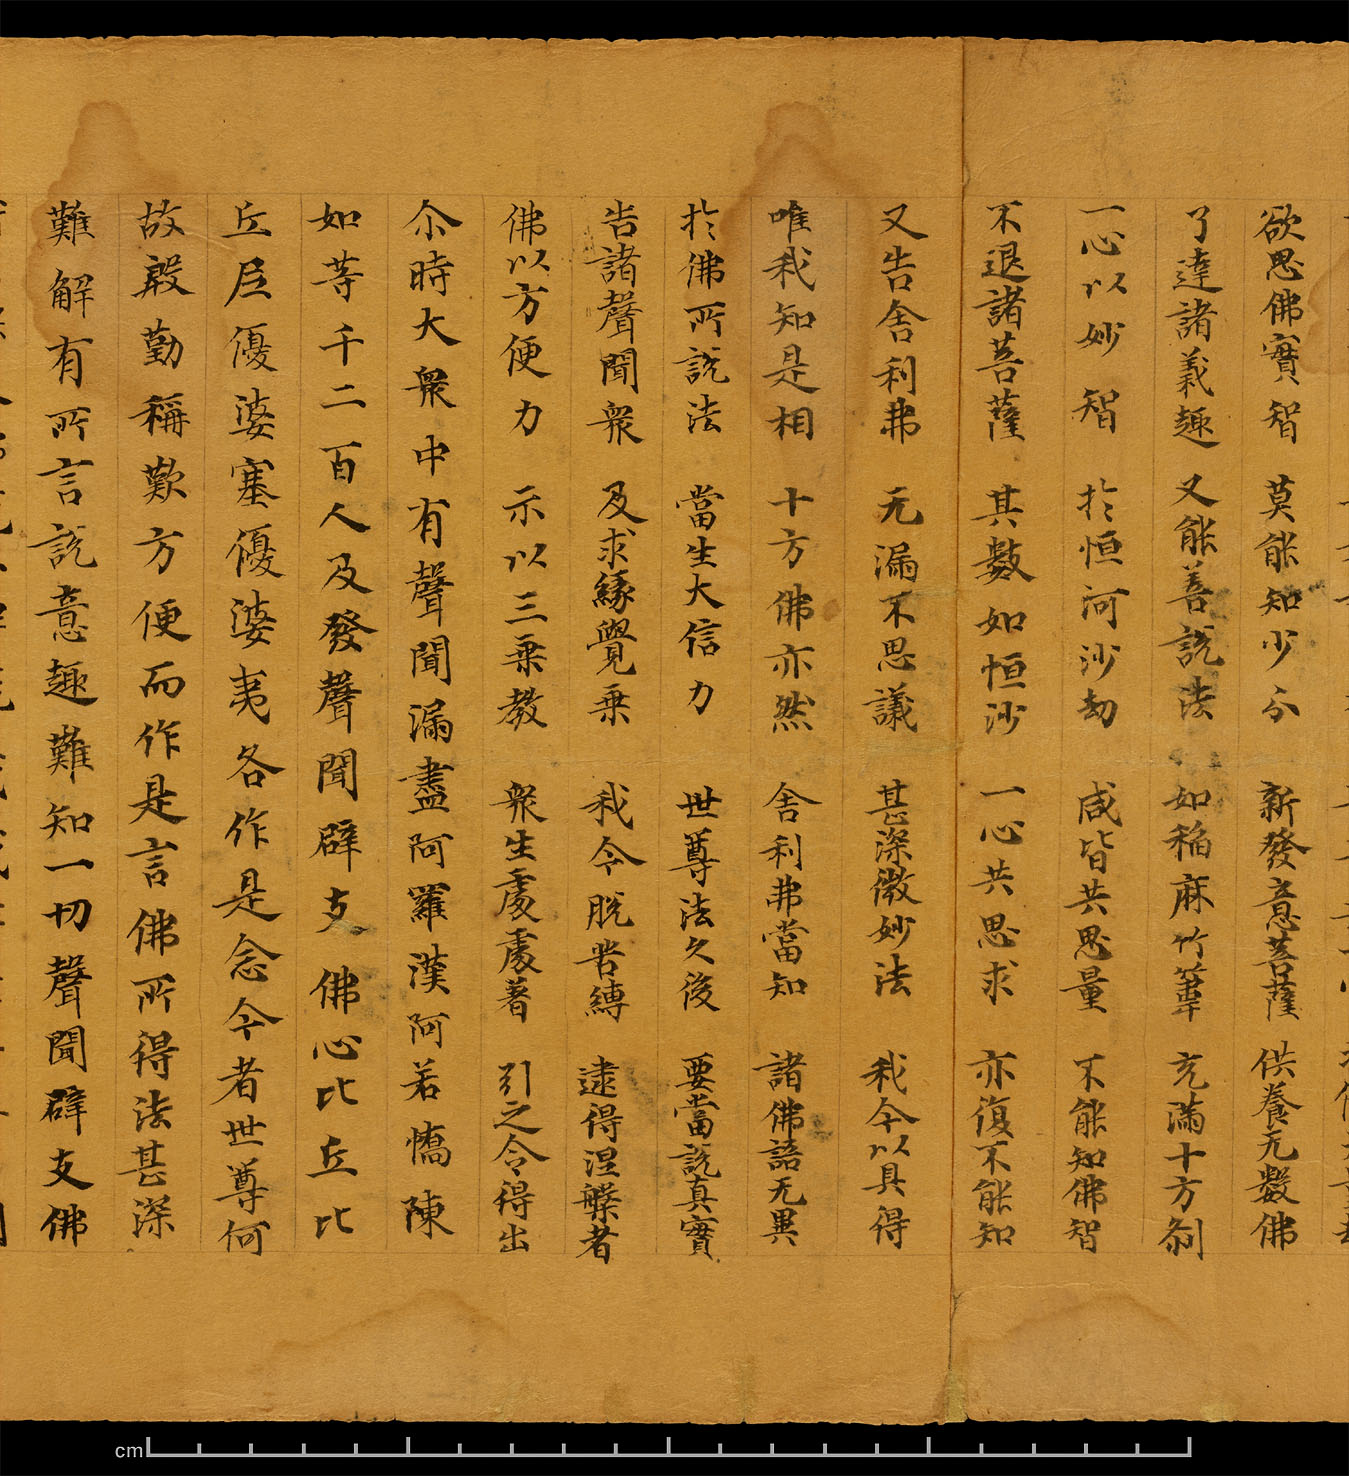 欲思佛實智 莫能知少分 新發意菩薩 供養无數佛
了達諸義趣 又能善說法 如稲麻竹葦 充滿十方刹
一心以妙智 於恒河沙劫 咸皆共思量 不能知佛智
不退諸菩薩 其數如恒沙 一心共思求 亦復不能知
又告舍利弗 无漏不思議 甚深微妙法 我今以具得
唯我知是相 十方佛亦然 舍利弗當知 諸佛語无異
於佛所說法 當生大信力 世尊法久後 要當說真實
告諸聲聞衆 及求緣覺乗 我今脫苦縛 逮得涅槃者
佛以方便力 示以三乗教 衆生處處著 引之令得出
尒時大衆中有聲聞漏盡阿羅漢阿若憍陳
如等千二百人及發聲聞辟支佛心比丘比
丘尼優婆塞優婆夷各作是念今者世尊何
故慇勤稱歎方便而作是言佛所得法甚深
難解有所言說意趣難知一切聲聞辟支佛